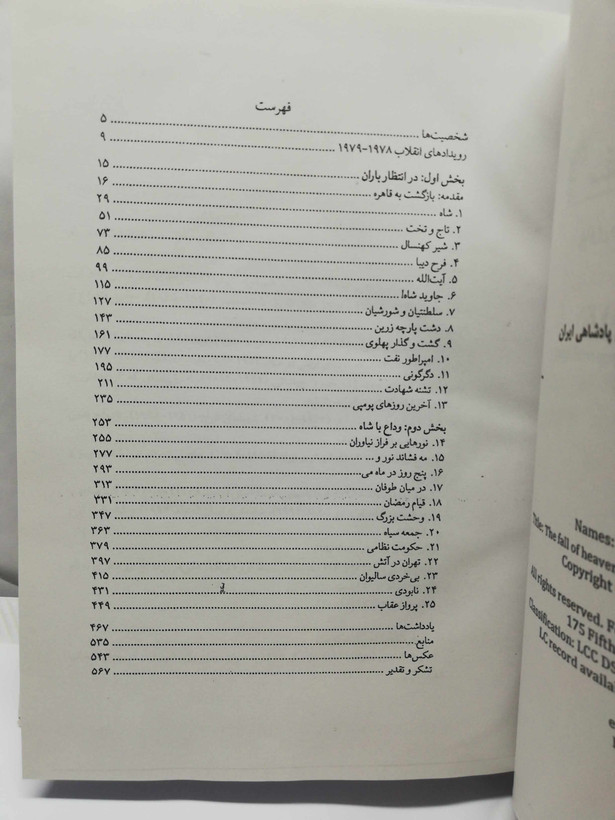 فهرست
شخصیت‌ها ..... ۵
رویدادهای انقلاب ۱۹۷۸-۱۹۷۹ ..... ۹
بخش اول: در انتظار باران ..... ۱۵
مقدمه: بازگشت به قاهره ..... ۱۶
۱. شاه ..... ۲۹
۲. تاج و تخت ..... ۵۱
۳. شیر کهنسال ..... ۷۳
۴. فرح دیبا ..... ۸۵
۵. آیت‌الله ..... ۹۹
۶. جاوید شاه! ..... ۱۱۵
۷. سلطنتیان و شورشیان ..... ۱۲۷
۸. دشت پارچه زرین ..... ۱۴۳
۹. گشت و گذار پهلوی ..... ۱۶۱
۱۰. امپراطور نفت ..... ۱۷۷
۱۱. دگرگونی ..... ۱۹۵
۱۲. تشنه شهادت ..... ۲۱۱
۱۳. آخرین روزهای پومپی ..... ۲۳۵
بخش دوم: وداع با شاه ..... ۲۵۳
۱۴. نورهایی بر فراز نیاوران ..... ۲۵۵
۱۵. مه فشاند نور و ... ..... ۲۷۷
۱۶. پنج روز در ماه می ..... ۲۹۳
۱۷. در میان طوفان ..... ۳۱۳
۱۸. قیام رمضان ..... ۳۳۱
۱۹. وحشت بزرگ ..... ۳۴۷
۲۰. جمعه سیاه ..... ۳۶۳
۲۱. حکومت نظامی ..... ۳۷۹
۲۲. تهران در آتش ..... ۳۹۷
۲۳. بی‌خردی سالیوان ..... ۴۱۵
۲۴. نابودی ..... ۴۳۱
۲۵. پرواز عقاب ..... ۴۴۹
یادداشت‌ها ..... ۴۶۷
منابع ..... ۵۳۵
عکس‌ها ..... ۵۴۳
تشکر و تقدیر ..... ۵۶۷
پادشاهی ایران
Names:
Title: The fall of heaven
Copyright
All rights reserved.
175 Fifth
Classification: LCC
LC record